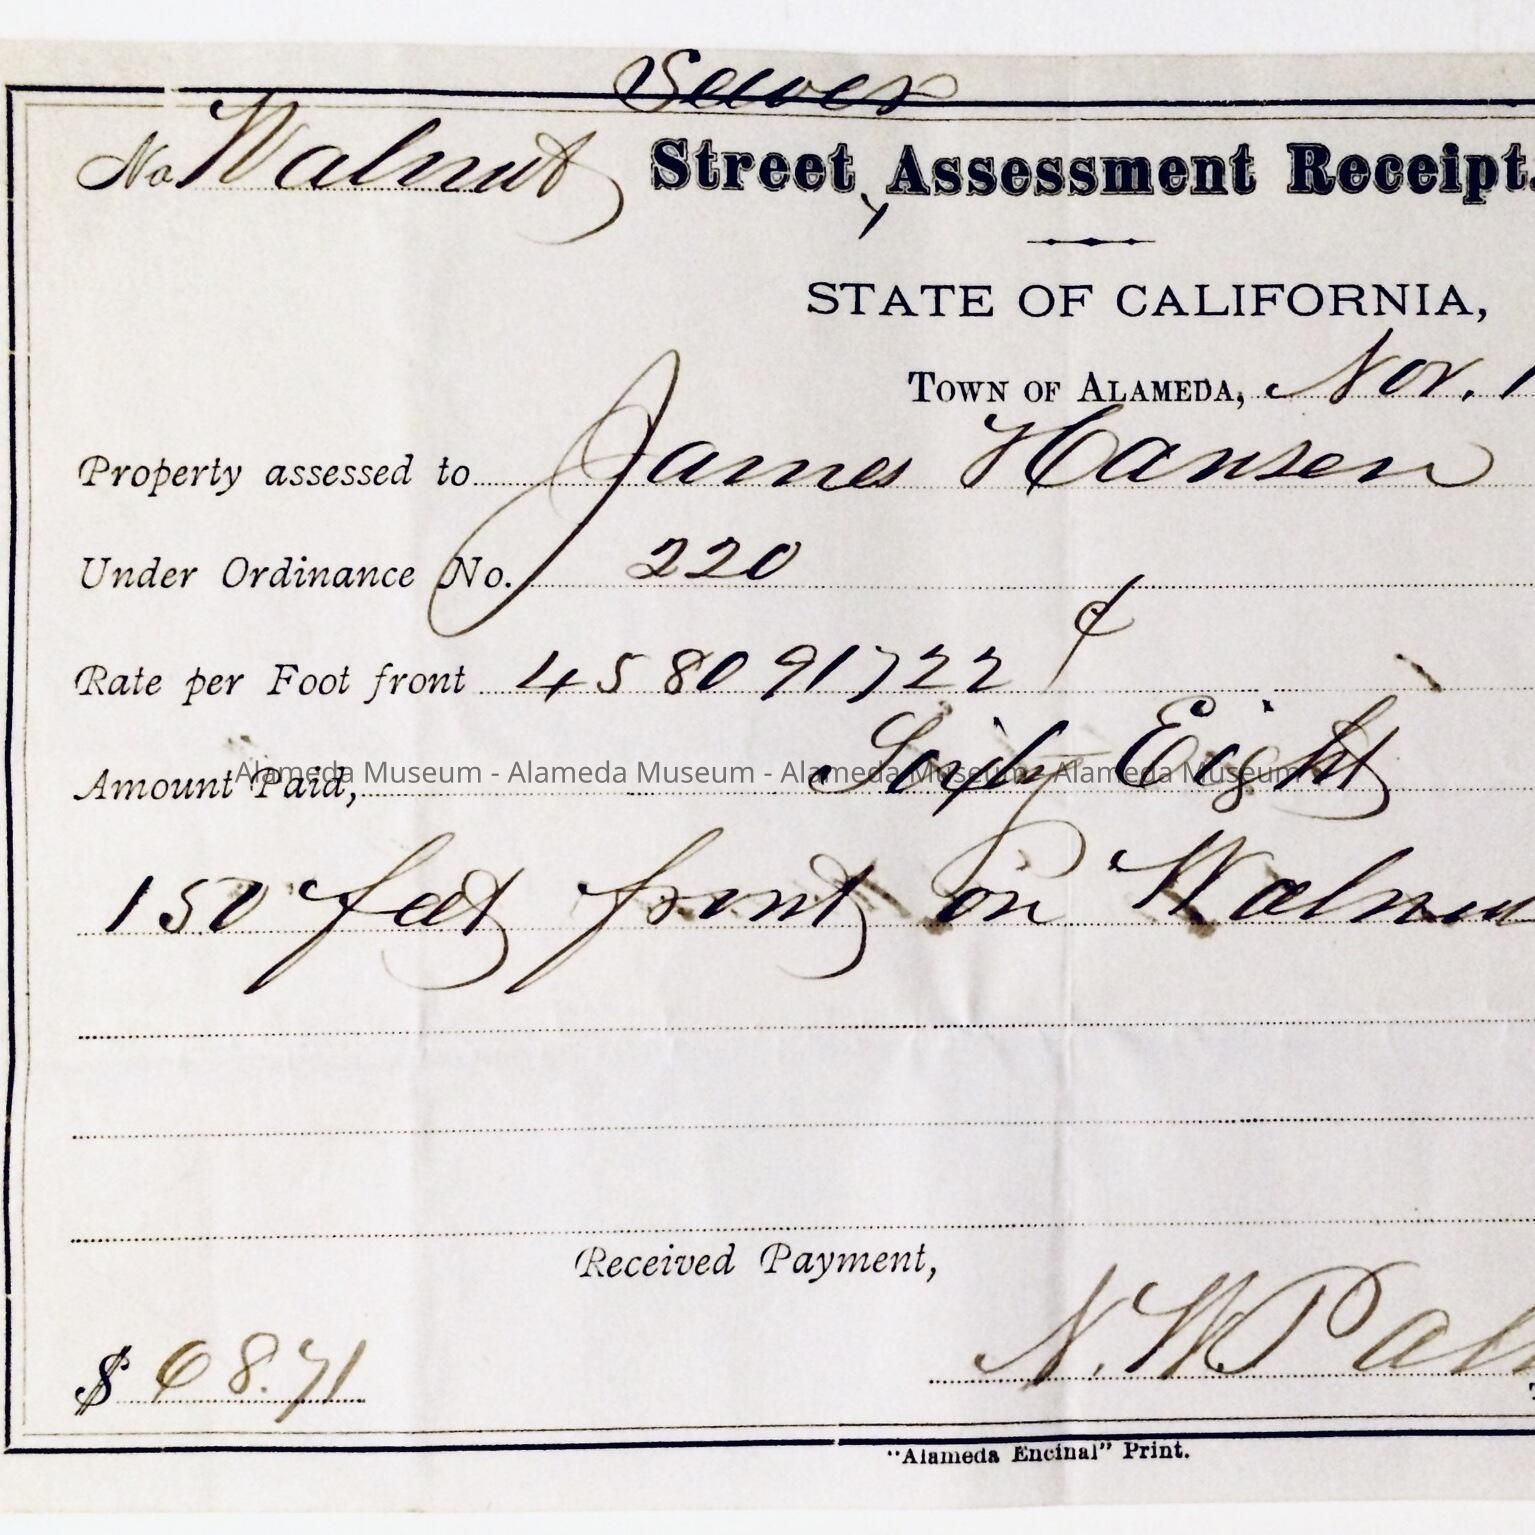 Sewer
No. Walnut Street Assessment Receipt.
STATE OF CALIFORNIA,
TOWN OF ALAMEDA, Nov. 1
Property assessed to James Hansen
Under Ordinance No. 220
Rate per Foot front 45 8091722 ¢
Amount Paid, Sixty Eight
Alameda Museum - Alameda Museum - Alameda Museum - Alameda Museum
150 feet front on Walnu
Received Payment,
$ 68.71 N. W. Pal
"Alameda Encinal" Print.